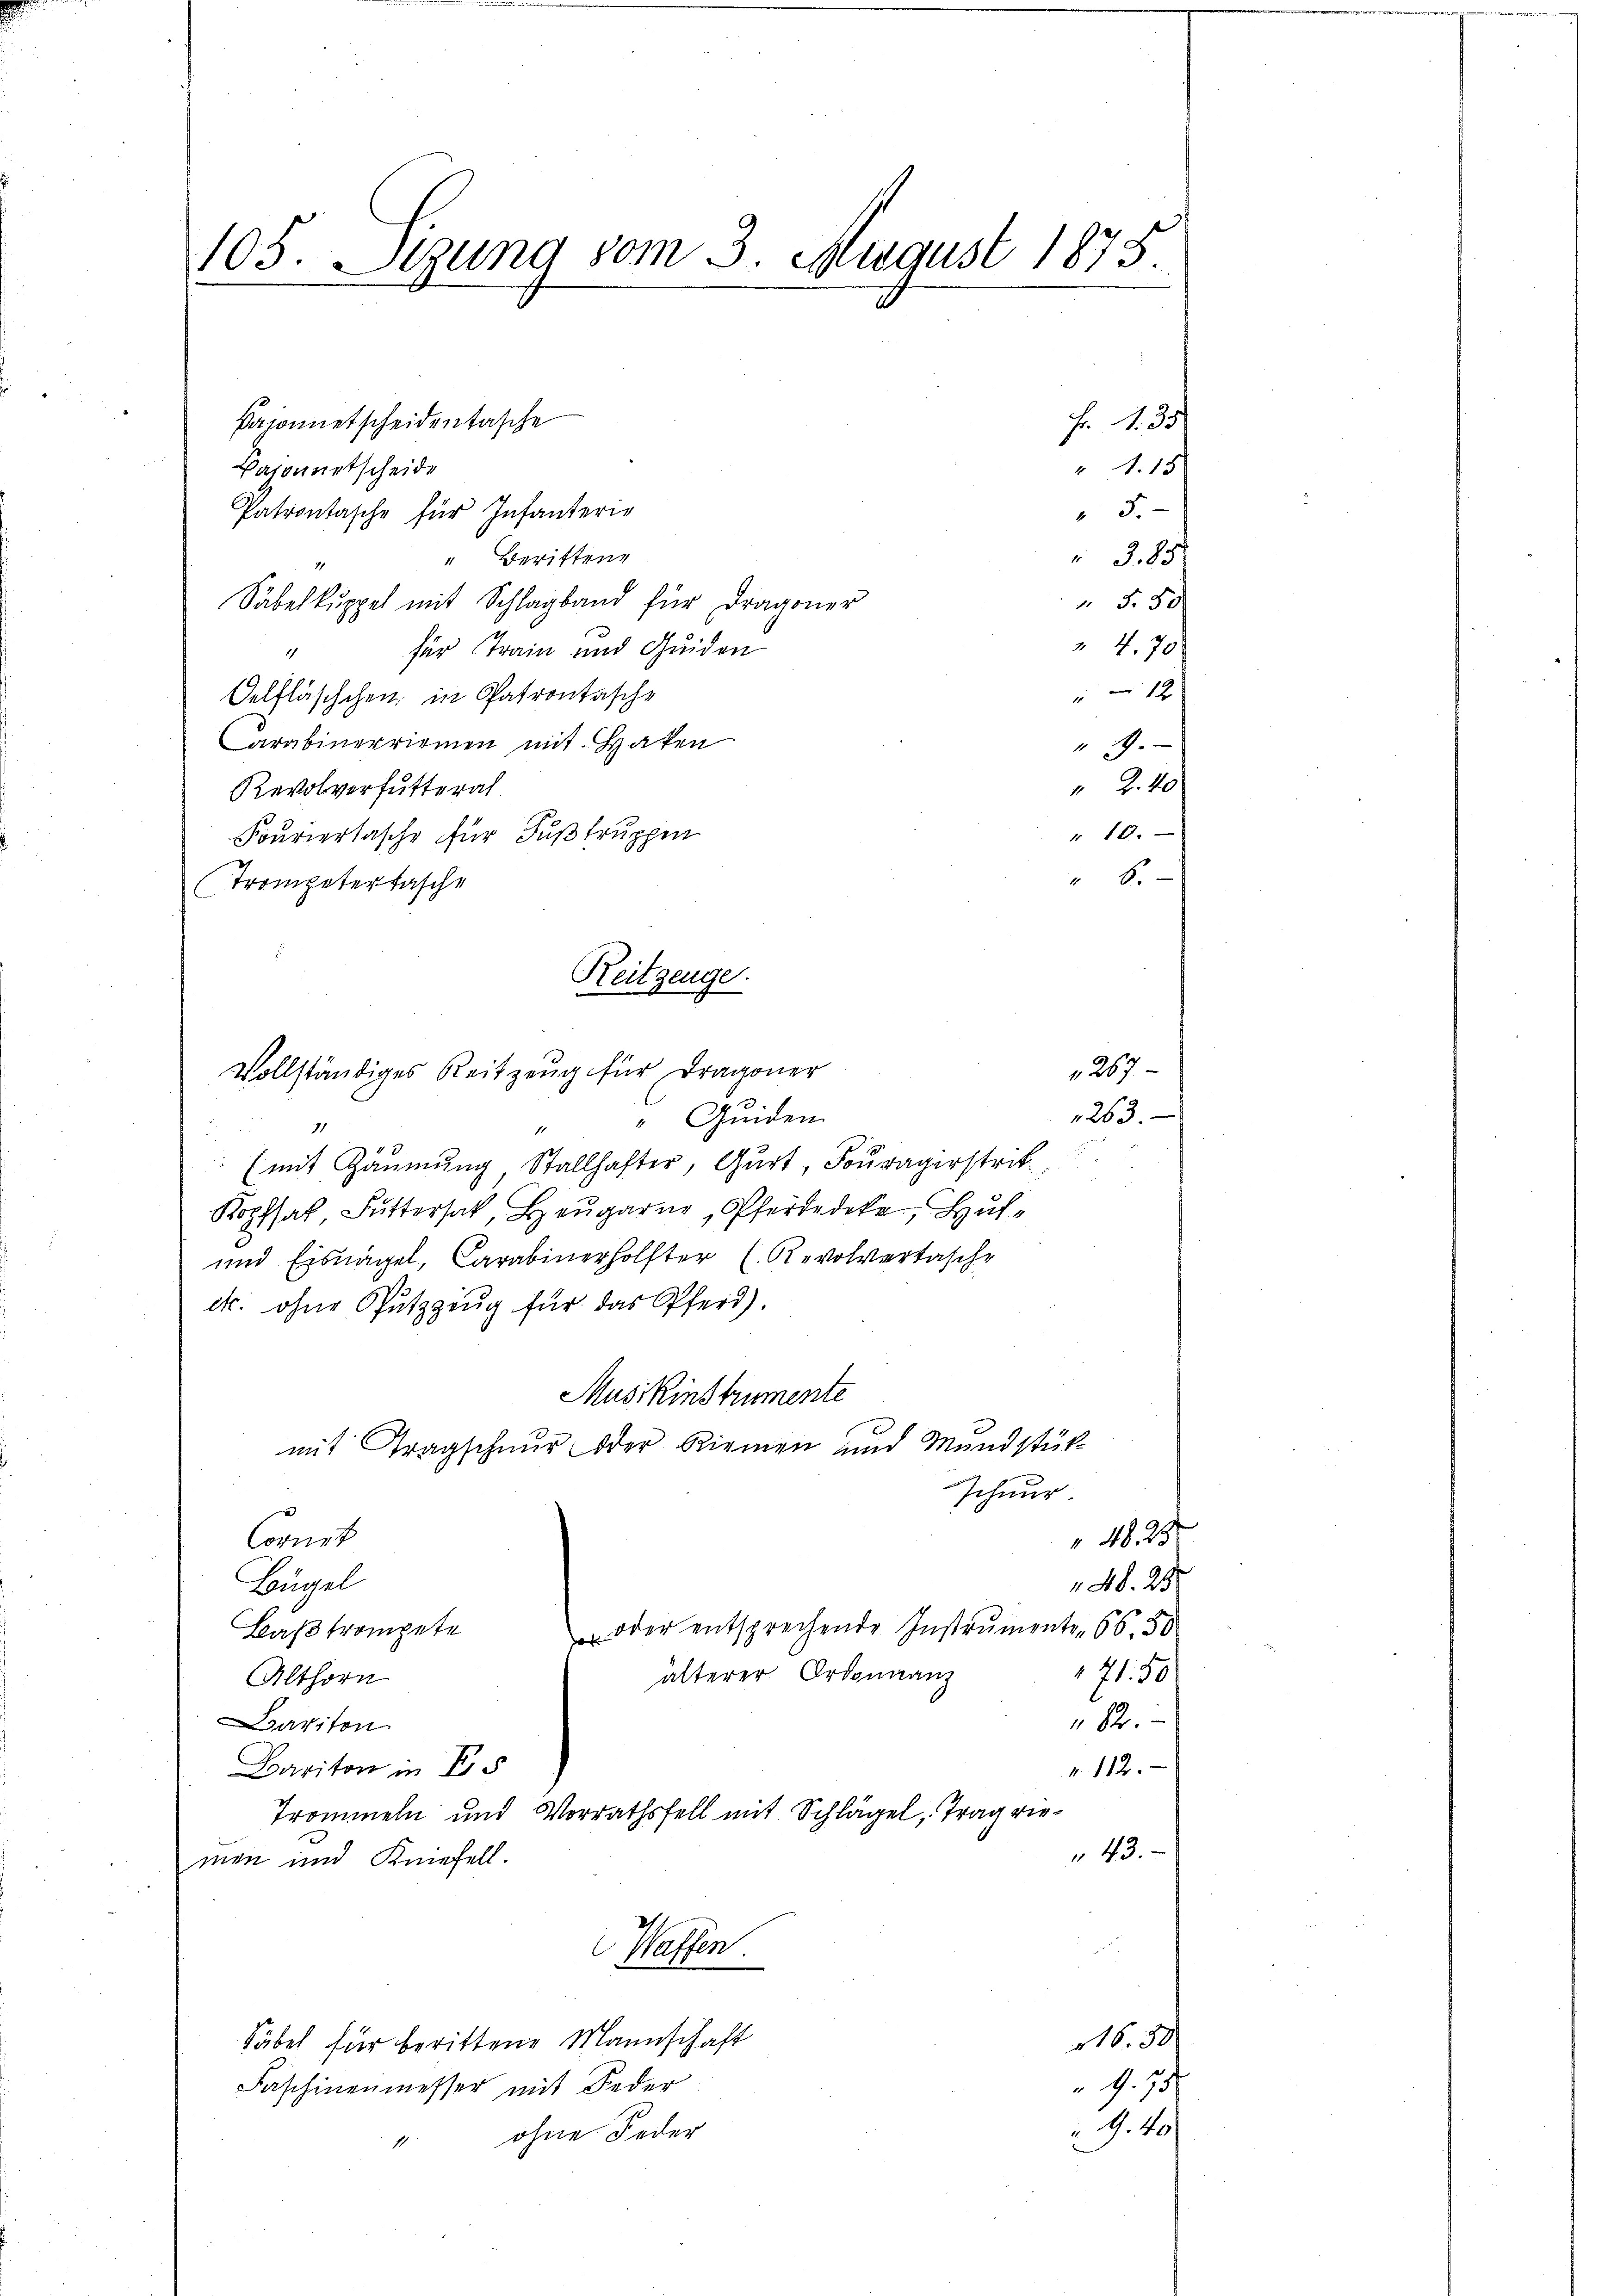 105. Sizung vom 3. August 1875.
Bajonnetscheidentasche Fr. 1.35
Bajonnetscheide " 1.15
Patrontasche für Infanterie " 5.-
" " Berittene " 3.85
Säbelkuppel mit Schlagband für Dragoner " 5.50
" für Train und Guiden " 4.70
Oelfläschchen in Patrontasche " - 12
Carabinerriemen mit Haken " 9.-
Revolverfutteral " 2.40
Fouriertasche für Fußtruppen " 10.-
Trompetertasche " 6.-
Reitzeuge.
Vollständiges Reitzeug für Dragoner " 267-
" " " Guiden " 263.-
(mit Zäumung, Stallhalfter, Gurt, Fouragirstrik,
Kopfsak, Futtersak, Heugarne, Pferdedeke, Huf-
und Eisnägel, Carabinerholfter (Revolvertasche
etc. ohne Putzzeug für das Pferd).
Musikinstrumente
mit Tragschnur oder Riemen und Mundstük-
schnur.
Cornet " 48.25
Bügel " 48.25
Baßtrompete oder entsprechende Instrumente " 66.50
Althorn älterer Ordonnanz " 71.50
Bariton " 82.-
Bariton in Es " 112.-
Trommeln und Vorrathsfell mit Schlägel, Tragrie-
men und Kniefell. " 43.-
Waffen.
Säbel für berittene Mannschaft " 16.50
Faschinenmesser mit Feder " 9.75
" ohne Feder " 9.40